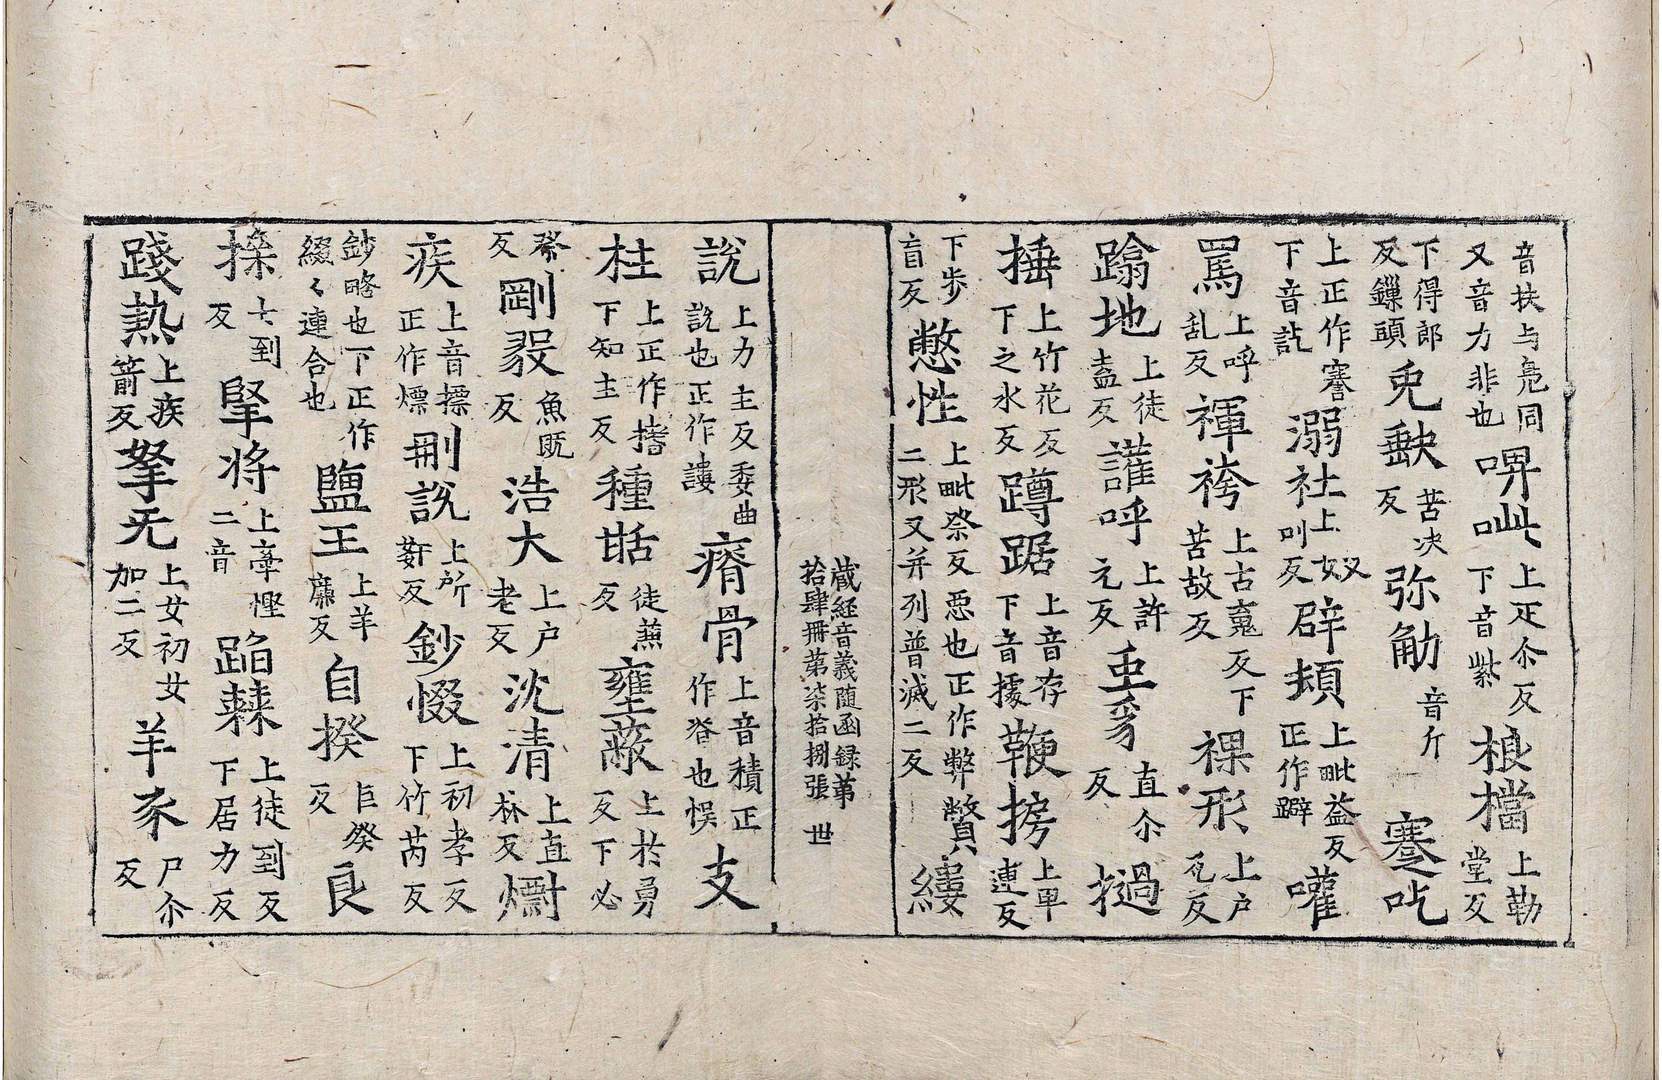 音扶与凫同又音力非也㖿呰上疋尒反下音紫桹檔上勒堂反
下得郎反鏁頭兎缺苦决反弥勈音斤蹇吃
上正作謇下音訖溺社上奴叫反辟頬上毗益反正作躃嚾
罵上呼乱反褌袴上古䰟反下苦故反裸形上户瓦反
蹹地上徒盍反讙呼上許元反𧰲豸直尒反撾
捶上竹花反下之水反蹲踞上音存下音據鞭搒上卑連反
下步盲反憋性上毗祭反惡也正作弊獘二形又并列普滅二反縷
藏経音義随函録苐拾肆冊第柒拾捌張 世
說上力主反委曲說也正作謱瘠骨上音積正作膌也悮支
柱上正作搘下知主反種甛徒蒹反壅蔽上扵勇反下必
祭反剛毅魚旣反浩大上户老反沈清上直林反爝
疾上音摽正作熛刪說上所姧反鈔惙上初孝反下竹芮反
鈔略也下正作綴綴〻連合也鹽王上羊廉反自揆巨癸反良
操七到反掔将上牽慳二音蹈棘上徒到反下居力反
踐热上疾箭反拏无上女初女加二反羊豕尸尒反